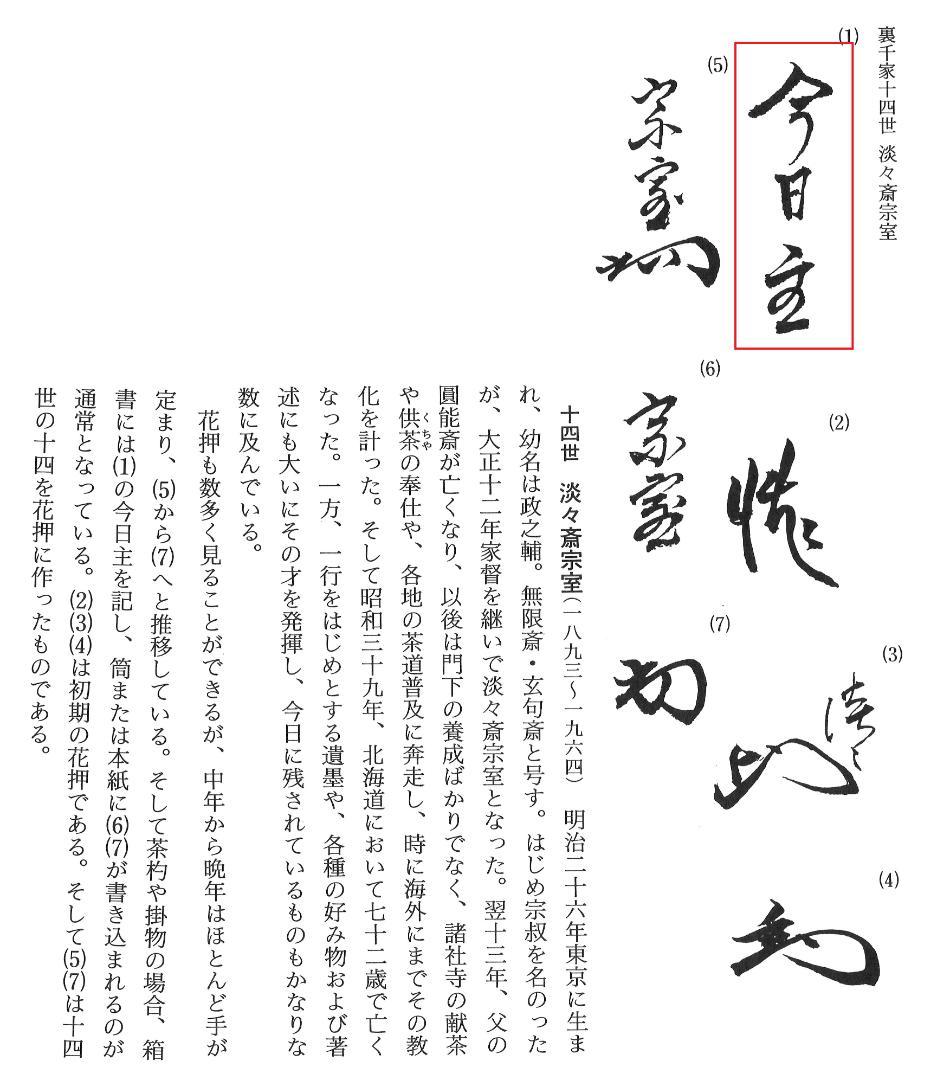 裏千家十四世 淡々斎宗室
(1)
今日主
(2)
(3)
淡々
(4)
(5)
宗室
(6)
宗室
(7)
十四世 淡々斎宗室(一八九三～一九六四) 明治二十六年東京に生ま
れ、幼名は政之輔。無限斎・玄句斎と号す。はじめ宗叔を名のった
が、大正十二年家督を継いで淡々斎宗室となった。翌十三年、父の
圓能斎が亡くなり、以後は門下の養成ばかりでなく、諸社寺の献茶
や供茶くちゃの奉仕や、各地の茶道普及に奔走し、時に海外にまでその教
化を計った。そして昭和三十九年、北海道において七十二歳で亡く
なった。一方、一行をはじめとする遺墨や、各種の好み物および著
述にも大いにその才を発揮し、今日に残されているものもかなりな
数に及んでいる。
花押も数多く見ることができるが、中年から晩年はほとんど手が
定まり、(5)から(7)へと推移している。そして茶杓や掛物の場合、箱
書には(1)の今日主を記し、筒または本紙に(6)(7)が書き込まれるのが
通常となっている。(2)(3)(4)は初期の花押である。そして(5)(7)は十四
世の十四を花押に作ったものである。